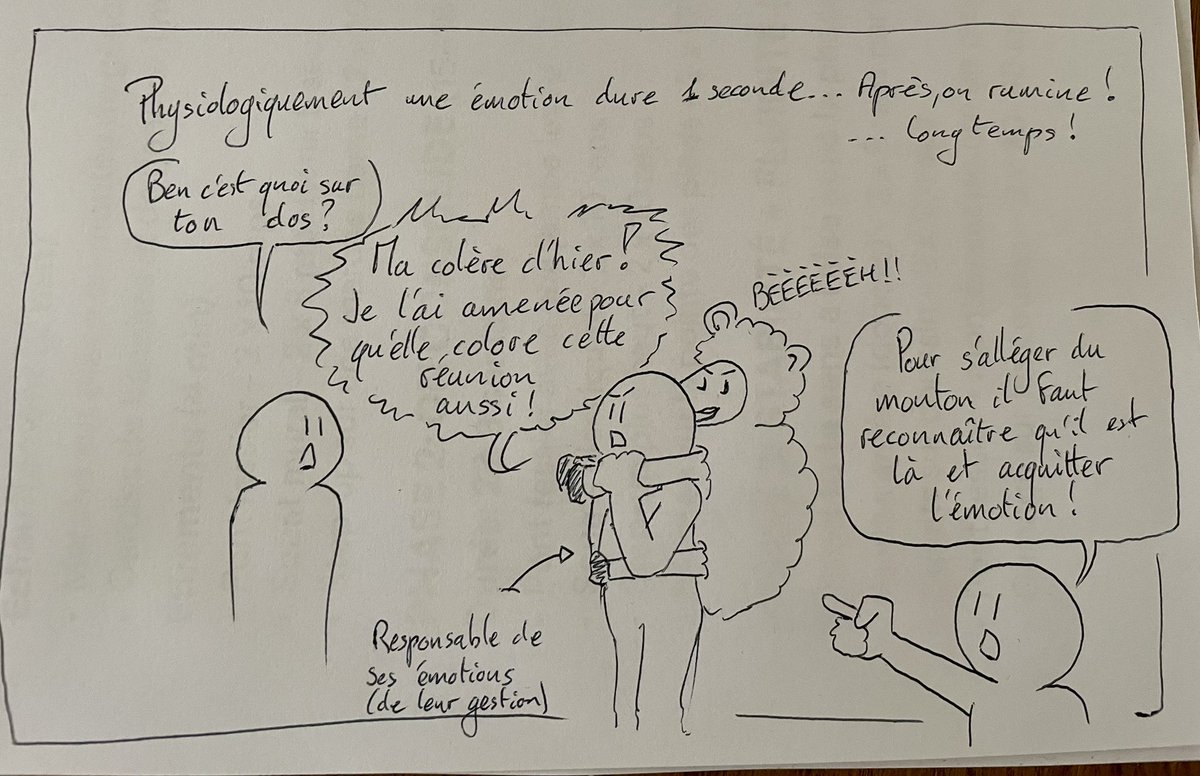 Physiologiquement une émotion dure 1 seconde... Après, on rumine !
... longtemps !
Ben c'est quoi sur
ton dos ?
Ma colère d'hier !
Je l'ai amenée pour
qu'elle colore cette
réunion
aussi !
BÈÈÈÈÈÈH !!
Pour s'alléger du
mouton il faut
reconnaître qu'il est
là et acquitter
l'émotion !
Responsable de
ses émotions
(de leur gestion)